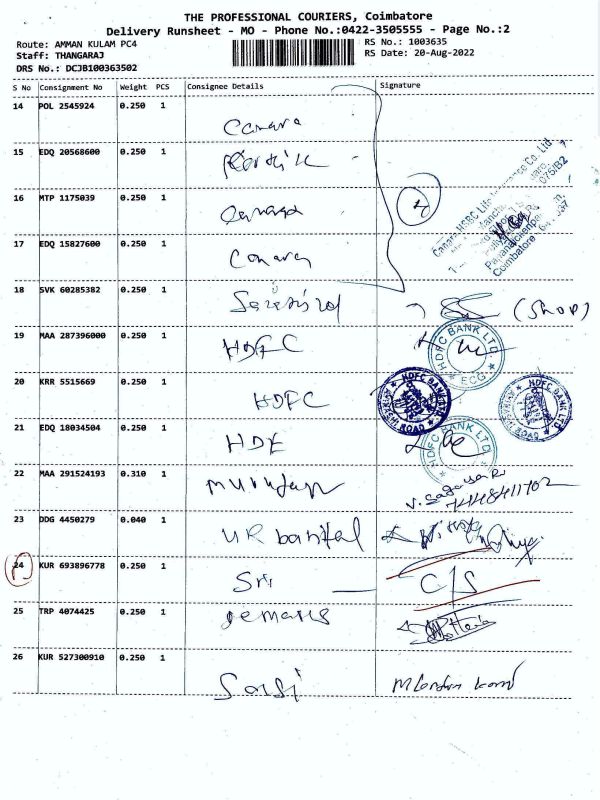 THE PROFESSIONAL COURIERS, Coimbatore
Delivery Runsheet - MO - Phone No.:0422-3505555 - Page No.:2
Route: AMMAN KULAM PC4 RS No.: 1003635
Staff: THANGARAJ RS Date: 20-Aug-2022
DRS No.: DCJB100363502
S No Consignment No Weight PCS Consignee Details Signature
14 POL 2545924 0.250 1 Canara
15 EDQ 20568600 0.250 1
16 MTP 1175039 0.250 1 Canara
17 EDQ 15827600 0.250 1 Canara
18 SVK 60285382 0.250 1 (Shop)
19 MAA 287396000 0.250 1 HDFC HDFC BANK LTD. ECG
20 KRR 5515669 0.250 1 HDFC HDFC BANK LTD. ROAD HDFC BANK LTD. ROAD
21 EDQ 18034504 0.250 1 HDF HDFC BANK LTD
22 MAA 291524193 0.310 1 murugan
23 DDG 4450279 0.040 1 UR
24 KUR 693896778 0.250 1 Sri C/S
25 TRP 4074425 0.250 1
26 KUR 527300910 0.250 1